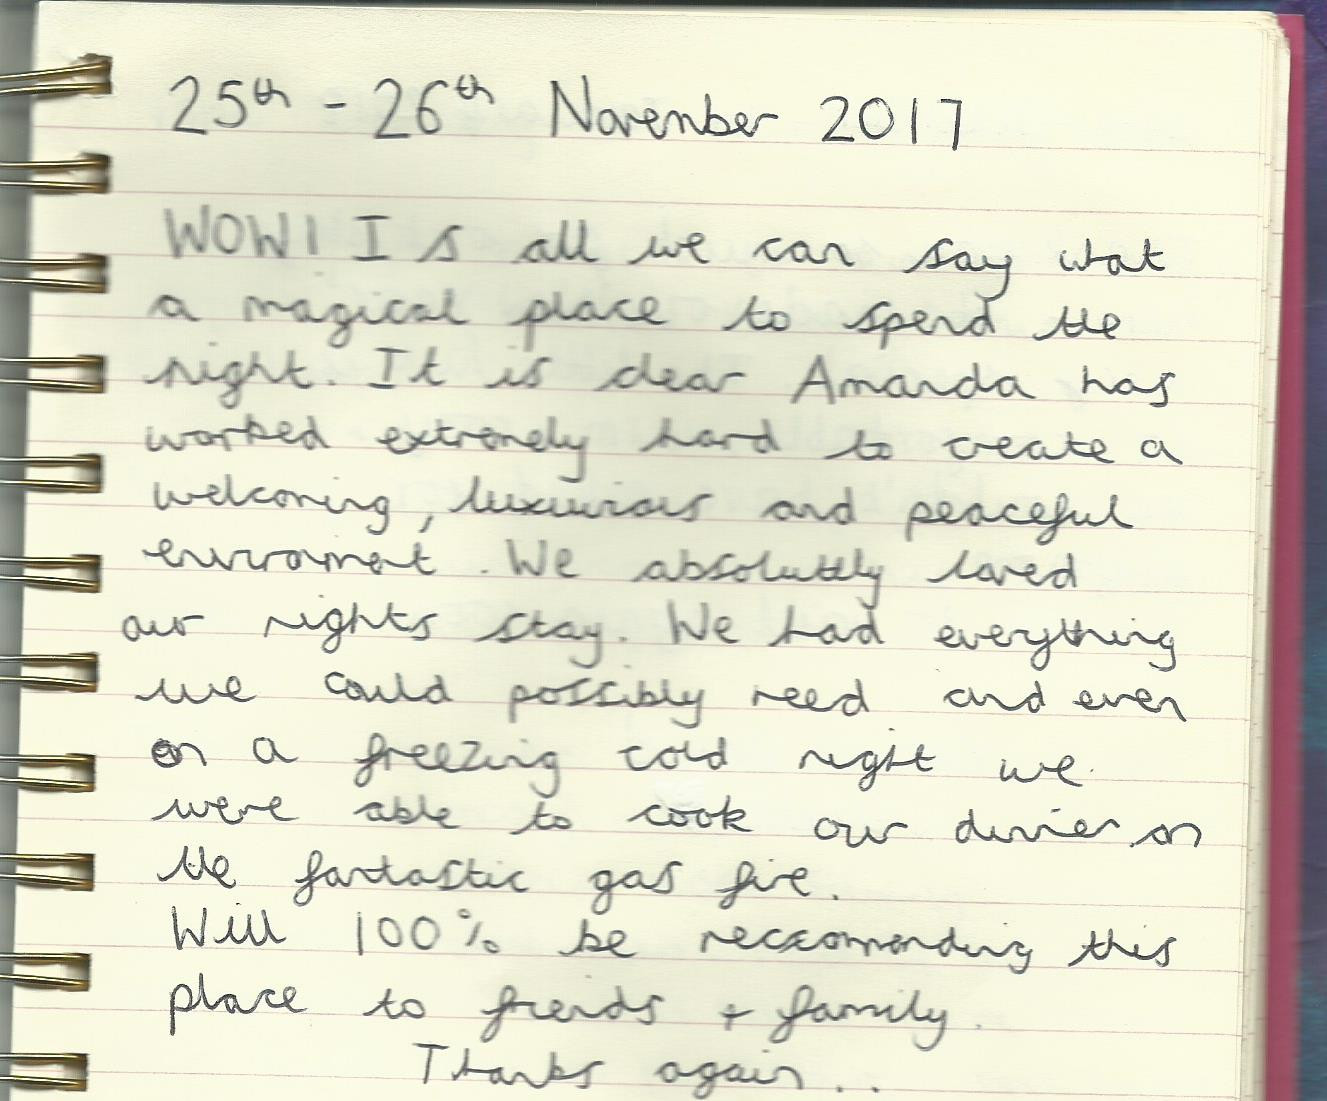 25th - 26th November 2017
WOW! I s all we can say what
a magical place to spend the
night. It is clear Amanda has
worked extremely hard to create a
welcoming, luxurious and peaceful
enviroment. We absolutely loved
our nights stay. We had everything
we could possibly need and even
on a freezing cold night we
were able to cook our dinner on
the fantastic gas fire.
Will 100% be reccommending this
place to friends + family.
Thanks again..